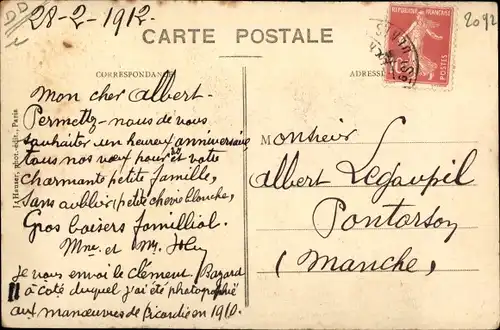 28-2-1912.
2092
CARTE POSTALE
RÉPUBLIQUE FRANÇAISE
POSTES
CORRESPONDANCE
ADRESSE
Mon cher Albert.
Permettez-nous de vous
souhaiter un heureux anniversaire,
tous nos vœux pour et votre
charmante petite famille,
sans oublier (petite chérie blanche,
Gros baisers familliol.
Mme. et Mr.
Je vous envoi le Clément. Bayard
à côté duquel j'ai été photographié
aux manœuvres de Picardie en 1910.
Monsieur
Albert Legoupil
Pontorson
(Manche)
J. Hauser, phot.-édit., Paris